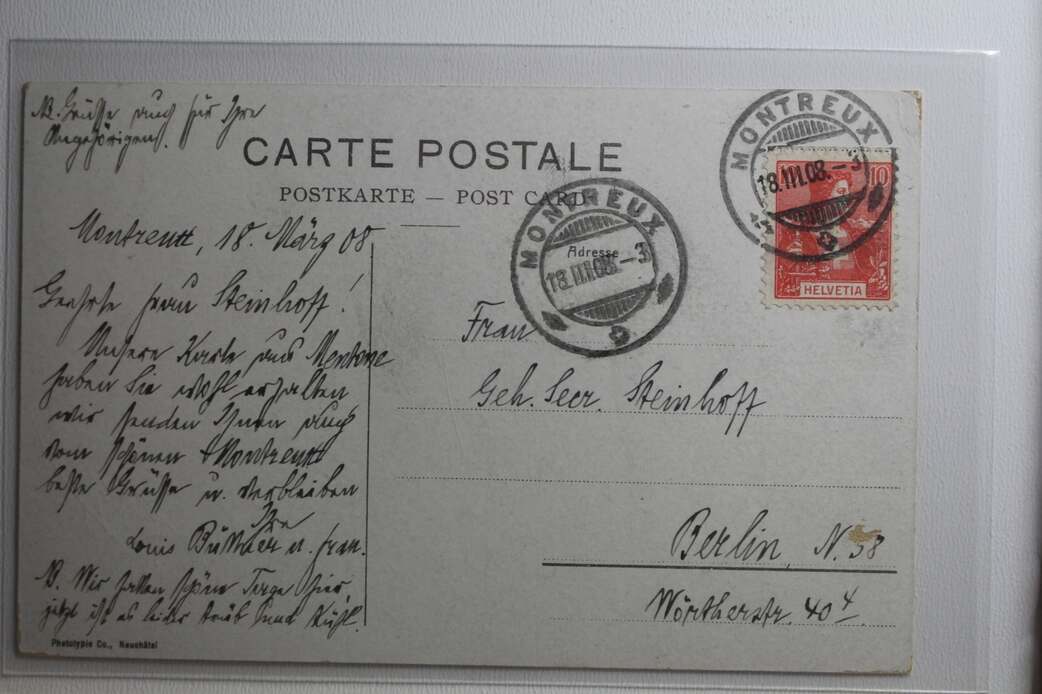 NB. Grüsse auch für Ihre
Angehörigen.
CARTE POSTALE
POSTKARTE — POST CARD
Montreux, 18. März 08
Geehrte Frau Steinhoff!
Unsere Karte aus Mentone
haben Sie wohl erhalten
wir senden Ihnen auch
vom schönen Montreux
beste Grüsse u. verbleiben
Ihre
Louis Büttner u. Frau.
NB. Wir hatten schöne Tage hier,
jetzt ist es leider trüb und kühl.
Phototypie Co., Neuchâtel
MONTREUX
18.III.08.–3
MONTREUX
18.III.08.–3
10
HELVETIA
Adresse
Frau
Geh. Secr. Steinhoff
Berlin, N. 58
Wörtherstr. 40 4